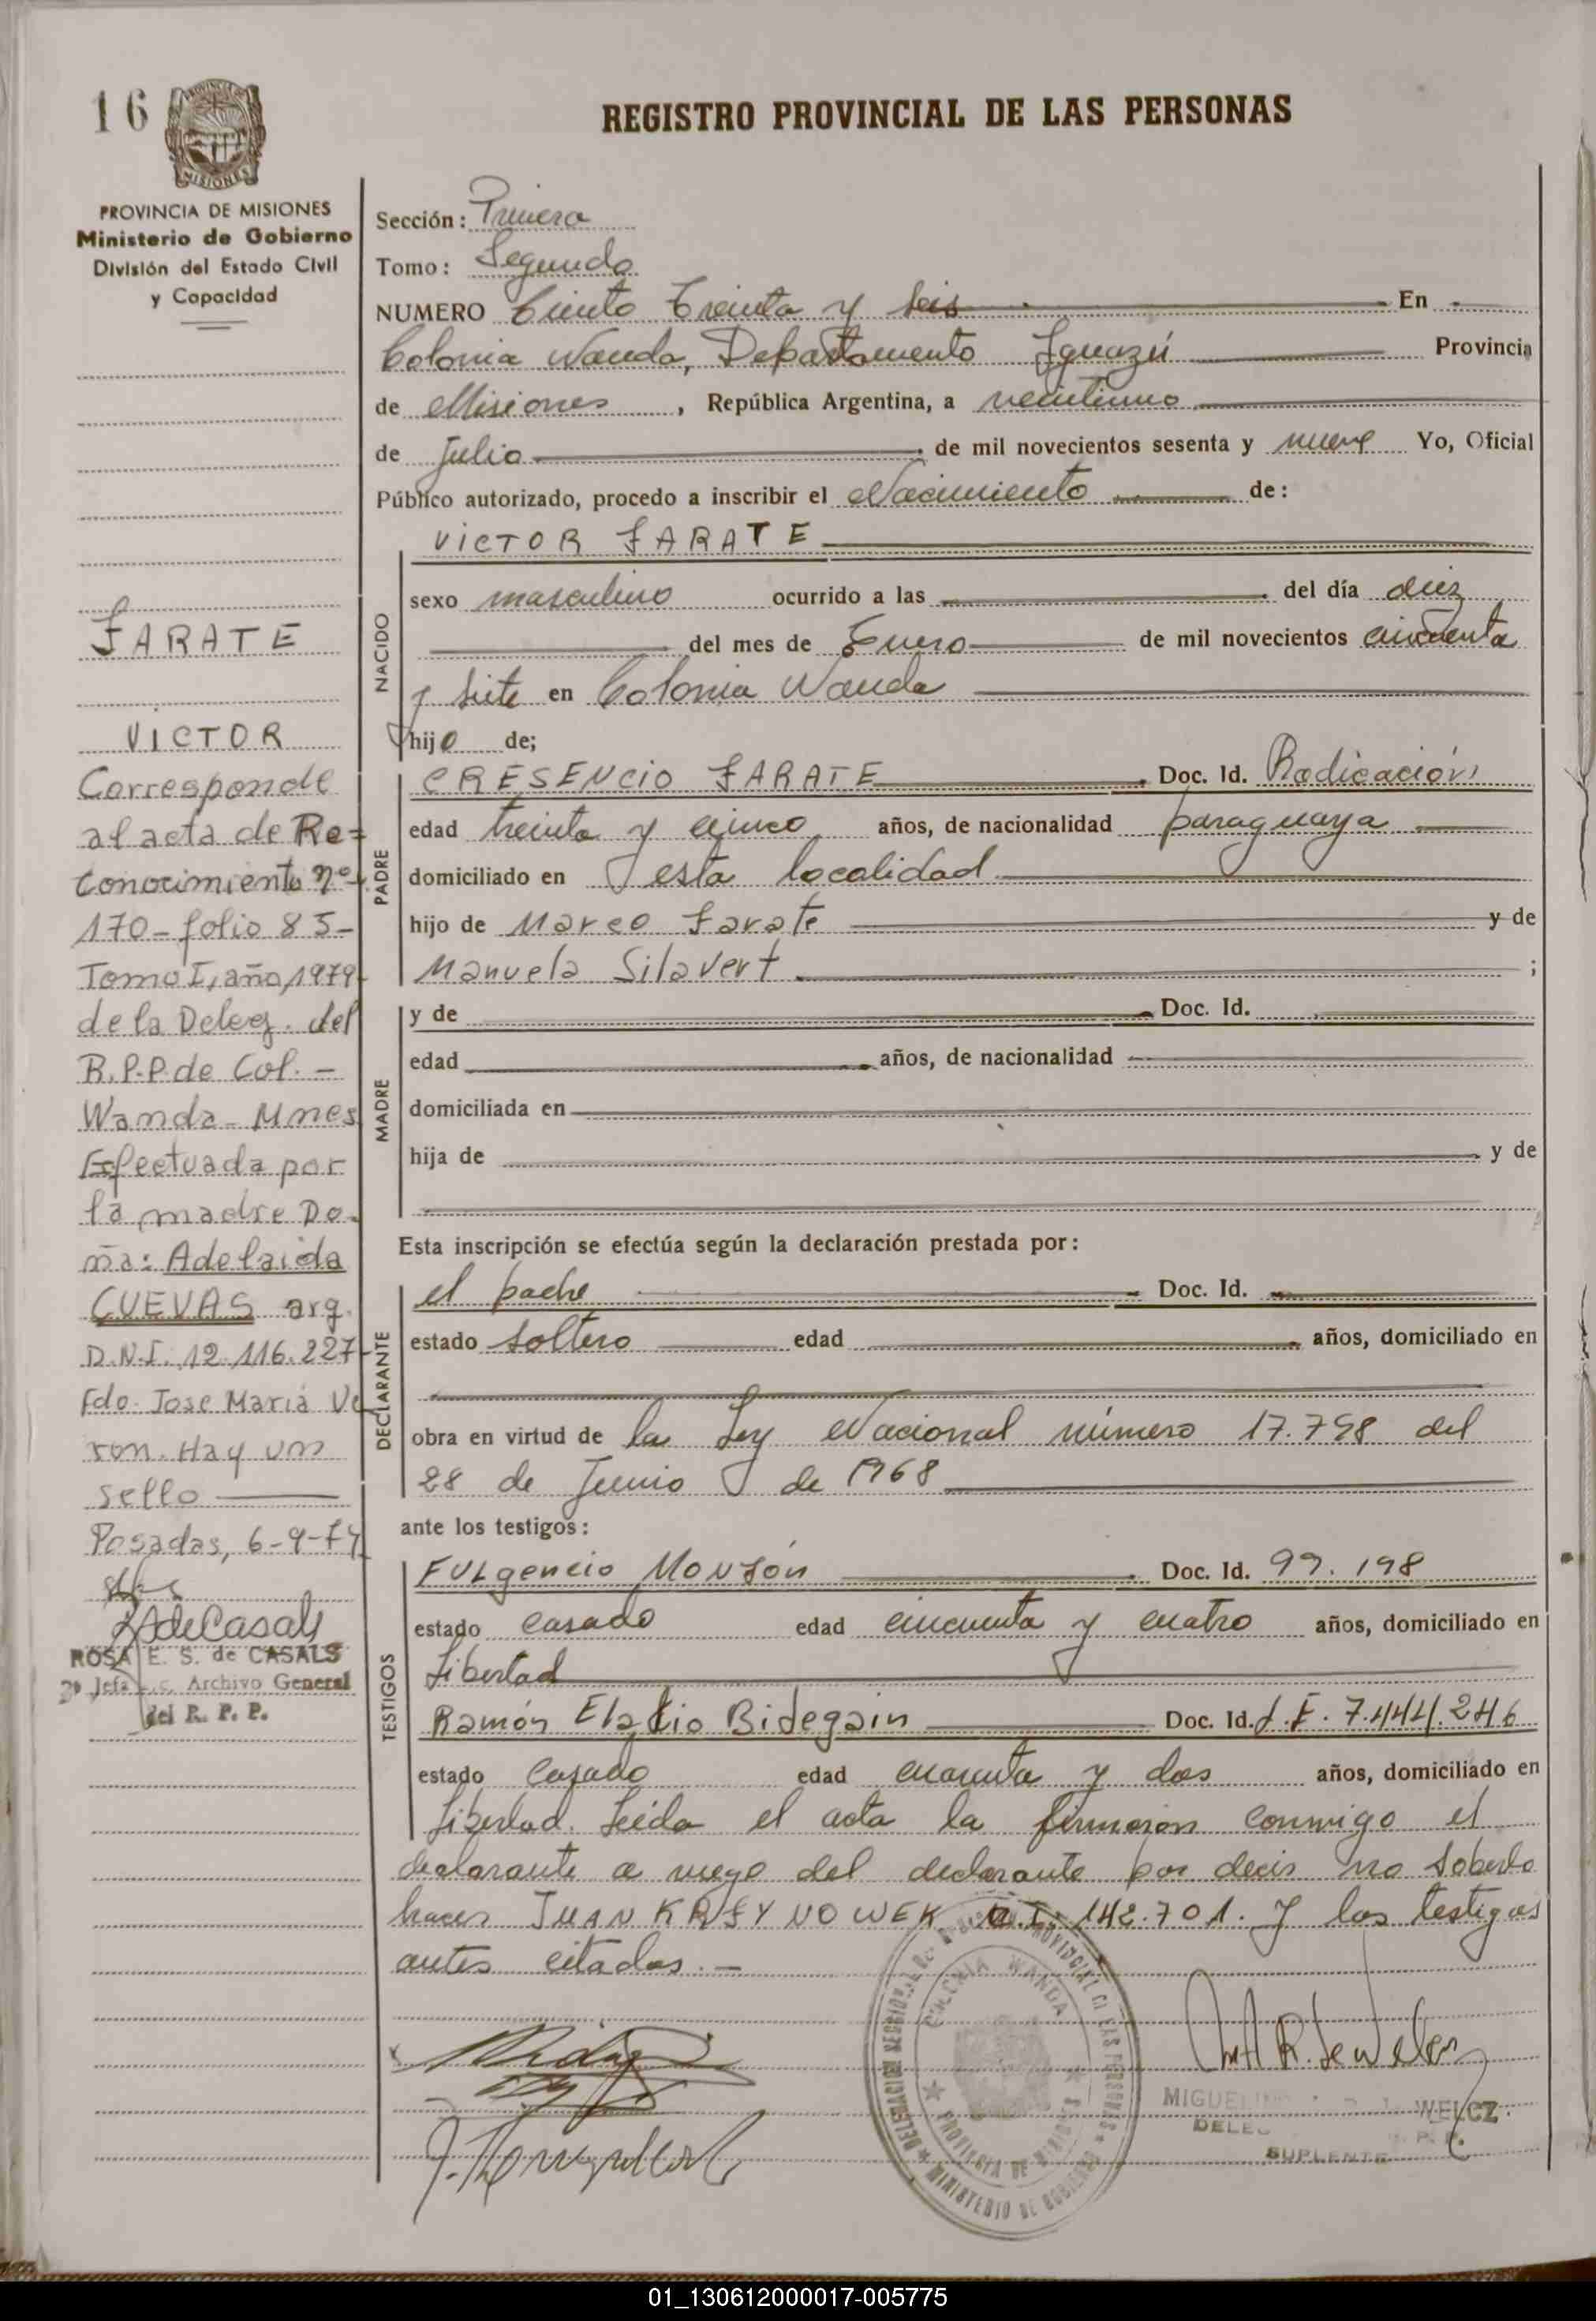 16
REGISTRO PROVINCIAL DE LAS PERSONAS
MISIONES
PROVINCIA DE MISIONES
Ministerio de Gobierno
División del Estado Civil
y Capacidad
Sección: Primera
Tomo: Segundo
NUMERO Ciento Treinta y seis En
Colonia Wanda, Departamento Iguazú Provincia
de Misiones, República Argentina, a veintiuno
de Julio de mil novecientos sesenta y nueve Yo, Oficial
Público autorizado, procedo a inscribir el Nacimiento de:
VICTOR ZARATE
NACIDO
sexo masculino ocurrido a las del día diez
del mes de Enero de mil novecientos cincuenta
y siete en Colonia Wanda
hijo de;
PADRE
CRESENCIO ZARATE Doc. Id. Radicación
edad treinta y cinco años, de nacionalidad paraguaya
domiciliado en esta localidad
hijo de Marco Zarate y de
Manuela Silavert ;
MADRE
y de Doc. Id.
edad años, de nacionalidad
domiciliada en
hija de y de
Esta inscripción se efectúa según la declaración prestada por:
DECLARANTE
el padre Doc. Id.
estado soltero edad años, domiciliado en
obra en virtud de la Ley Nacional número 17.798 del
28 de Junio de 1968
ante los testigos:
TESTIGOS
FULgencio MONZón Doc. Id. 99.198
estado casado edad cincuenta y cuatro años, domiciliado en
Libertad
Ramón Bidegain Doc. Id. L.E. 7.444.246
estado casado edad cuarenta y dos años, domiciliado en
Libertad. Leída el acta la firmaron conmigo el
declarante a ruego del declarante por decir no saberlo
hacer JUAN KRZYNOWEK C.I. 142.701. Y los testigos
antes citados.-
ZARATE
VICTOR
Corresponde
al acta de Re=
conocimiento nº
170- folio 85-
Tomo I, año 1979
de la Deleg. del
R.P.P. de Col. -
Wanda- Mnes
Efectuada por
la madre Do-
ña: Adelaida
CUEVAS arg.
D.N.I. 12.116.227-
Fdo. Jose Maria Ve
ron. Hay un
sello
Posadas, 6-9-79
ROSA E. S. de CASALS
Archivo General
del R. P. P.
COLONIA WANDA
PROVINCIA DE MISIONES
MINISTERIO DE GOBIERNO
WELCZ
SUPLENTE
01_130612000017-005775